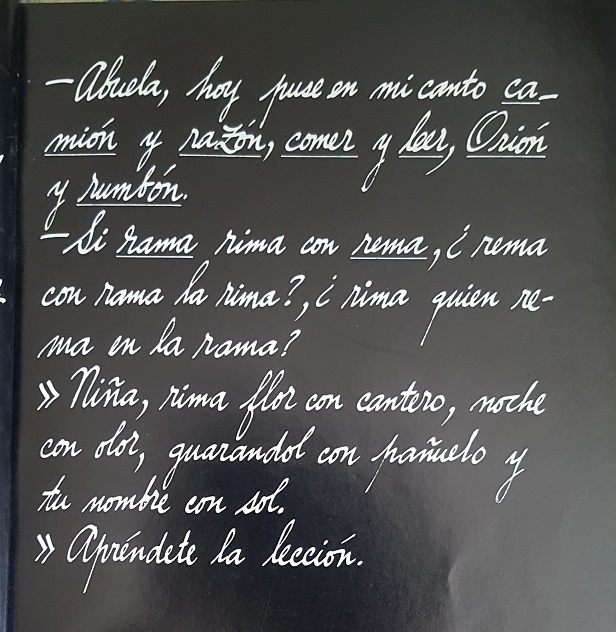 —Abuela, hoy puse en mi canto ca-
mión y razón, comer y leer, Orión
y rumbón.
—Si rama rima con rema, ¿rema
con rama la rima?, ¿rima quien re-
ma en la rama?
» Niña, rima flor con cantero, noche
con olor, guarandol con pañuelo y
tu nombre con sol.
» Apréndete la lección.